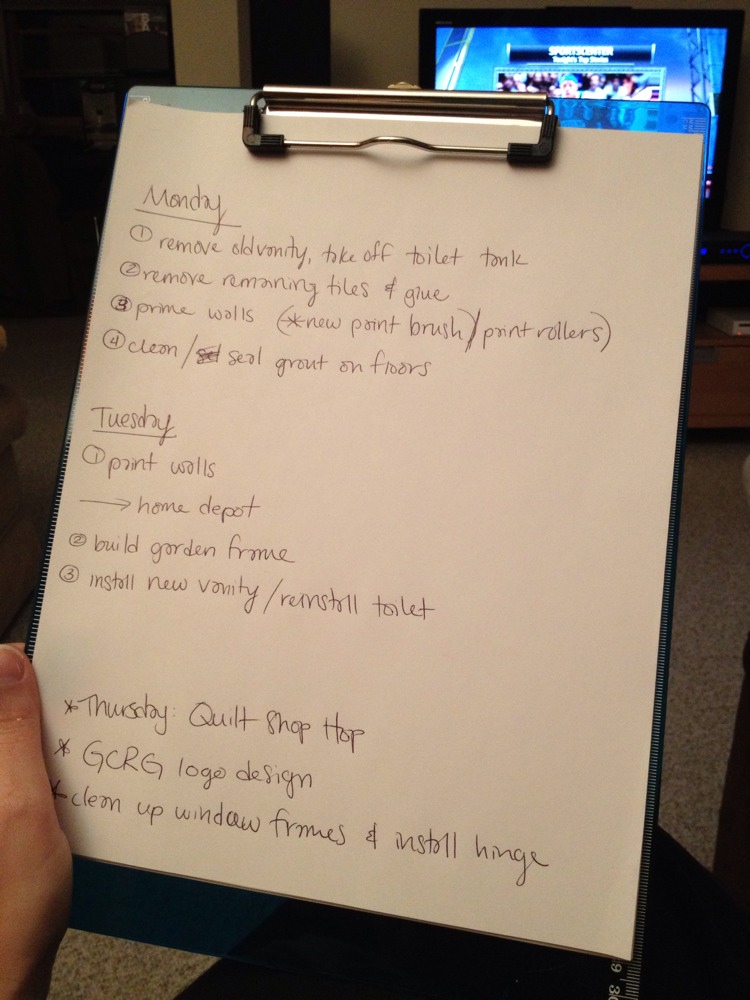 SPORTSCENTER
Tonight's Top Stories
Monday
① remove old vanity, take off toilet tank
② remove remaining tiles & glue
③ prime walls (*new paint brush)/paint rollers)
④ clean / seal grout on floors
Tuesday
① paint walls
→ home depot
② build garden frame
③ install new vanity/reinstall toilet
* Thursday: Quilt Shop Hop
* GCRG logo design
* clean up window frames & install hinge
9 30